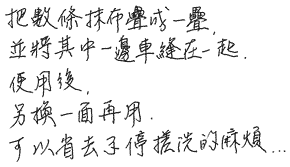 把數條抹布疊成一疊,
並將其中一邊車縫在一起.
使用後,
另換一面再用.
可以省去了停搓洗的麻煩...